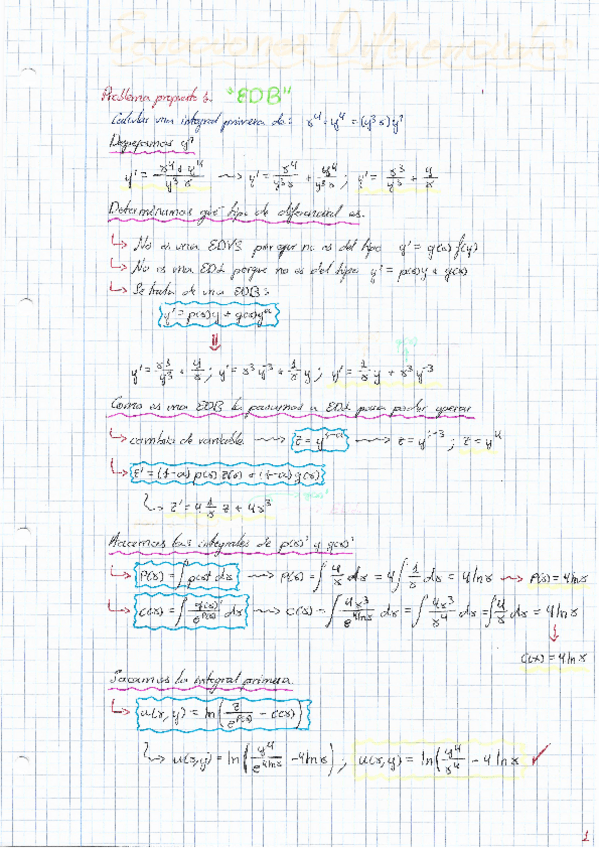 Ecuaciones Diferenciales
Problema propuesto 1. "EDB"
Calcular una integral primera de: x⁴+y⁴=(y³x)y'
Despejamos y'
y' = x⁴+y⁴/y³x → y' = x⁴/y³x + y⁴/y³x ; y' = x³/y³ + y/x
Determinamos que tipo de diferencial es.
↳ No es una EDVS porque no es del tipo y' = g(x) f(y)
↳ No es una EDL porque no es del tipo y' = p(x)y + q(x)
↳ Se trata de una EDB:
y' = p(x)y + q(x)yᵅ
⇓
y' = x³/y³ + y/x ; y' = x³y⁻³ + 1/x y ; y' = 1/x y + x³y⁻³
Como es una EDB la pasamos a EDL para poder operar
↳ cambio de variable → z = y¹⁻ᵅ → z = y¹⁻⁻³ ; z = y⁴
↳ z' = (1-α) p(x) z(x) + (1-α) q(x)
↳ z' = 4 1/x z + 4x³
Hacemos las integrales de p(x)' y q(x)'
↳ P(x) = ∫ p(x) dx → P(x) = ∫ 4/x dx = 4∫ 1/x dx = 4 ln x → P(x) = 4 ln x
↳ C(x) = ∫ q(x)'/e^P(x) dx → C(x) = ∫ 4x³/e^4lnx dx = ∫ 4x³/x⁴ dx = ∫ 4/x dx = 4 ln x
↓
C(x) = 4 ln x
Sacamos la integral primera.
↳ u(x,y) = ln(z/e^P(x) - C(x))
↳ u(x,y) = ln(y⁴/e^4lnx - 4 ln x) ; u(x,y) = ln(y⁴/x⁴ - 4 ln x ✓
1